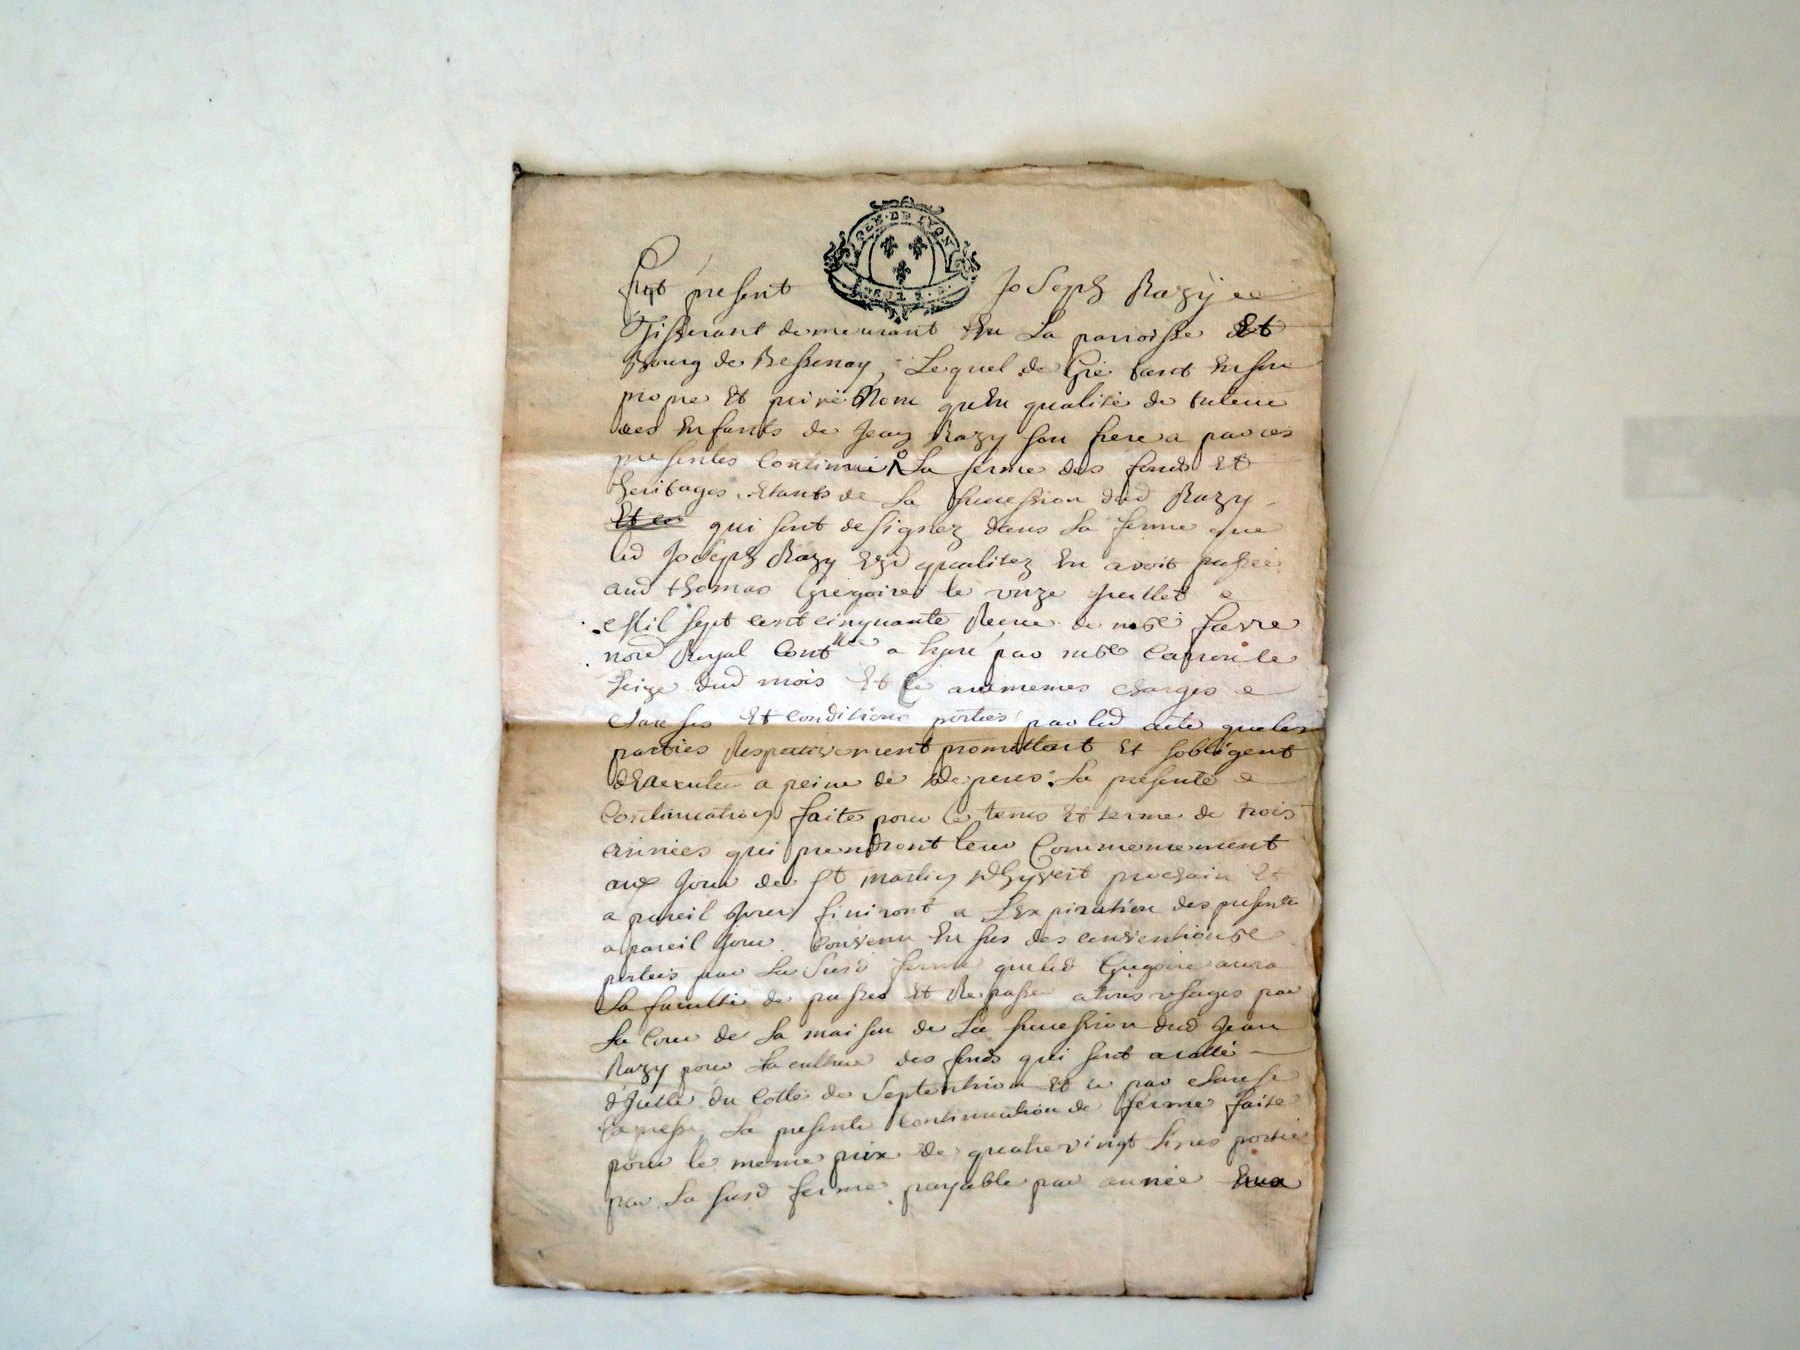 GEN·DE LYON
fut présent Joseph Razy
Tisserant demeurant En La parroisse Et
Bourg de Bessenay, Lequel de Gré tant En son
propre Et privé Nom qu'En qualité de tuteur
des Enfants de Jean Razy son frere a par ces
presentes Continué La ferme des fonds Et
heritages Etants de La succession dud Razy
qui sont designez dans La ferme que
led Joseph Razy Esd qualitez En avoit passée
aud thomas Gregoire le onze Juillet
Mil sept cent cinquante Receue de me favre
nore Royal Contllée a par me le
seize dud mois Et ce aux memes charges
clauses Et conditions portées par led acte que les
parties Respectivement promettent Et sobligent
dExecuter a peine de depens. La presente
Continuation faite pour le tems Et terme de trois
années qui prendront leur Commencement
aux Jour de St martin dhyvert prochain Et
a pareil Jour finiront a LExpiration des presente
a pareil Jour. Convenu En sus des conventions
portées par La Susd ferme queled Gregoire aura
La faculté de passer Et Repasser a tous usages par
La Cour de La maison de La succession dud Jean
Razy pour La culture des fonds qui sont a collé
d'Icelle du Cotté de Septentrion Et ce par clause
Expresse, La presente Continuation de ferme faite
pour le meme prix de quatre vingt Livres portée
par La susd ferme payable par année